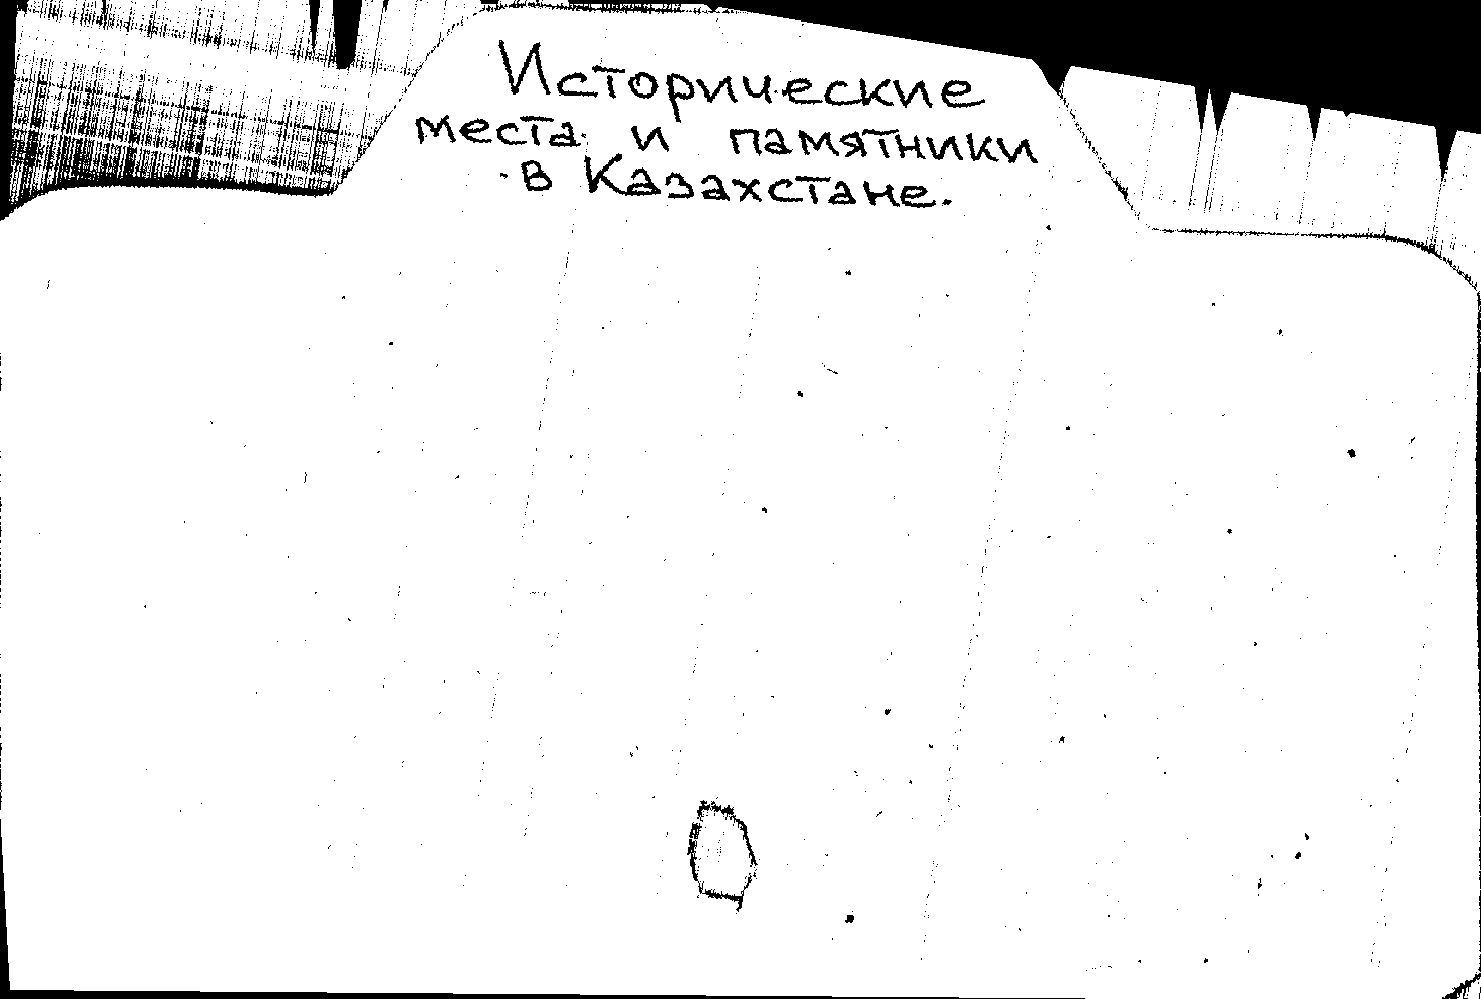 Исторические
места и памятники
в Казахстане.